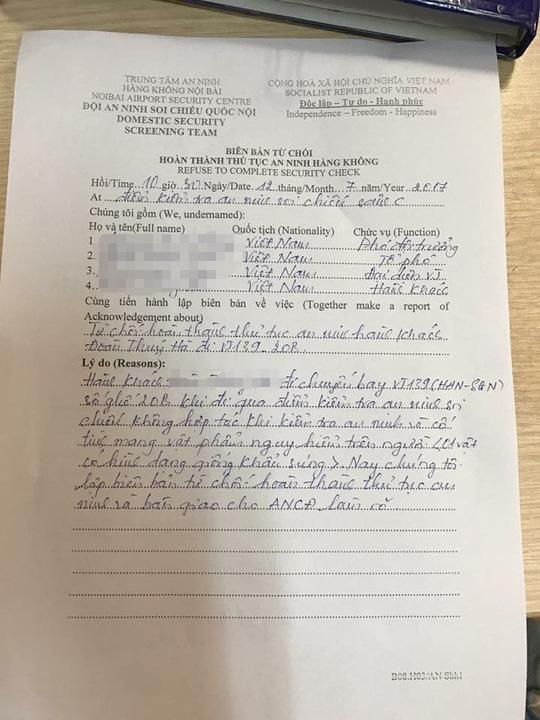 TRUNG TÂM AN NINH
HÀNG KHÔNG NỘI BÀI
NOIBAI AIRPORT SECURITY CENTRE
ĐỘI AN NINH SOI CHIẾU QUỐC NỘI
DOMESTIC SECURITY
SCREENING TEAM
CỘNG HOÀ XÃ HỘI CHỦ NGHĨA VIỆT NAM
SOCIALIST REPUBLIC OF VIETNAM
Độc lập – Tự do - Hạnh phúc
Independence – Freedom - Happiness
BIÊN BẢN TỪ CHỐI
HOÀN THÀNH THỦ TỤC AN NINH HÀNG KHÔNG
REFUSE TO COMPLETE SECURITY CHECK
Hồi/Time 10 giờ 30 Ngày/Date 12 tháng/Month 7 năm/Year 2017
At điểm kiểm tra an ninh soi chiếu C
Chúng tôi gồm (We, undernamed):
Họ và tên(Full name) Quốc tịch (Nationality) Chức vụ (Function)
1 Việt Nam Phó đội trưởng
2. Việt Nam Tổ phó
3. Việt Nam Đại diện VJ
4. Việt Nam Hành khách
Cùng tiến hành lập biên bản về việc (Together make a report of
Acknowledgement about)
Từ chối hoàn thành thủ tục an ninh hành khách
Đoàn Thuý Hà đi VJ139-20R.
Lý do (Reasons):
Hành khách đi chuyến bay VJ139 (HAN-SGN)
số ghế 20R khi đi qua điểm kiểm tra an ninh soi
chiếu không hợp tác khi kiểm tra an ninh và cố
tình mang vật phẩm nguy hiểm trên người (01 vật
có hình dạng giống khẩu súng). Nay chúng tôi
lập biên bản từ chối hoàn thành thủ tục an
ninh và bàn giao cho ANCĐ làm rõ.